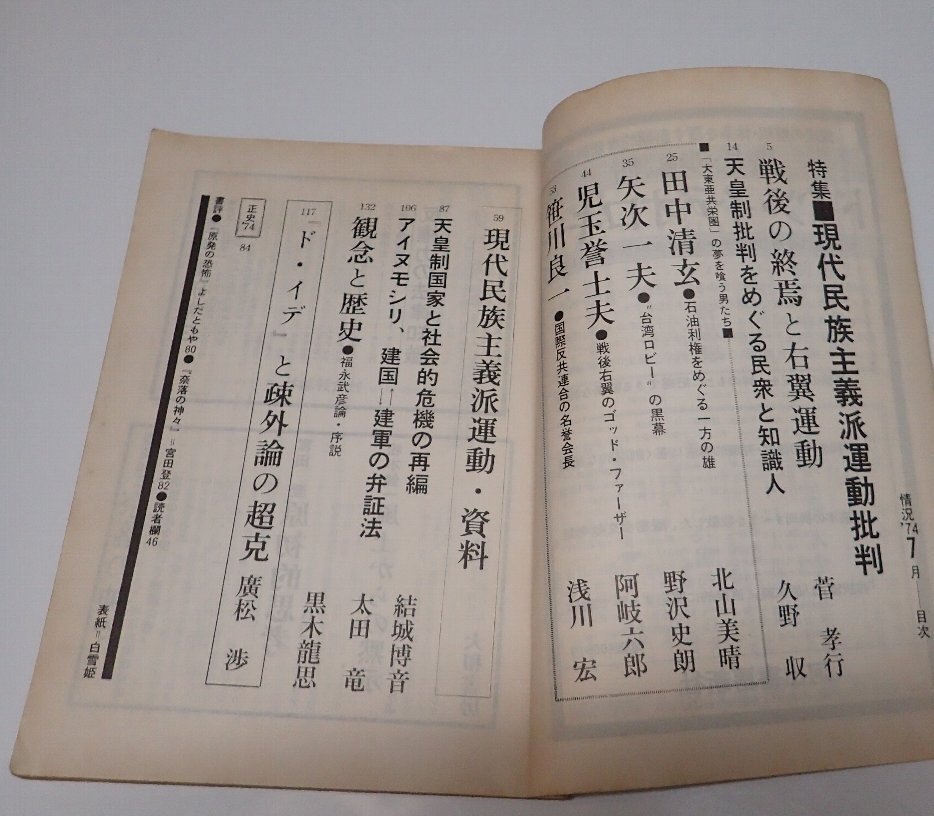 情況 '74 7月 目次
特集■現代民族主義派運動批判
5 戦後の終焉と右翼運動 菅 孝行
14 天皇制批判をめぐる民衆と知識人 久野 収
■「大東亜共栄圏」の夢を喰う男たち■
25 田中清玄●石油利権をめぐる一方の雄 北山美晴
35 矢次一夫●"台湾ロビー"の黒幕 野沢史朗
44 児玉誉士夫●戦後右翼のゴッド・ファーザー 阿岐六郎
53 笹川良一●国際反共連合の名誉会長 浅川 宏
59 現代民族主義派運動・資料
87 天皇制国家と社会的危機の再編 結城博音
106 アイヌモシリ、建国―建軍の弁証法 太田 竜
132 観念と歴史●福永武彦論・序説 黒木龍思
117 『ド・イデ』と疎外論の超克 廣松 渉
正史'74 84
書評●『原発の恐怖』よしだともや80●『奈落の神々』=宮田登82●読者欄46
表紙=白雪姫